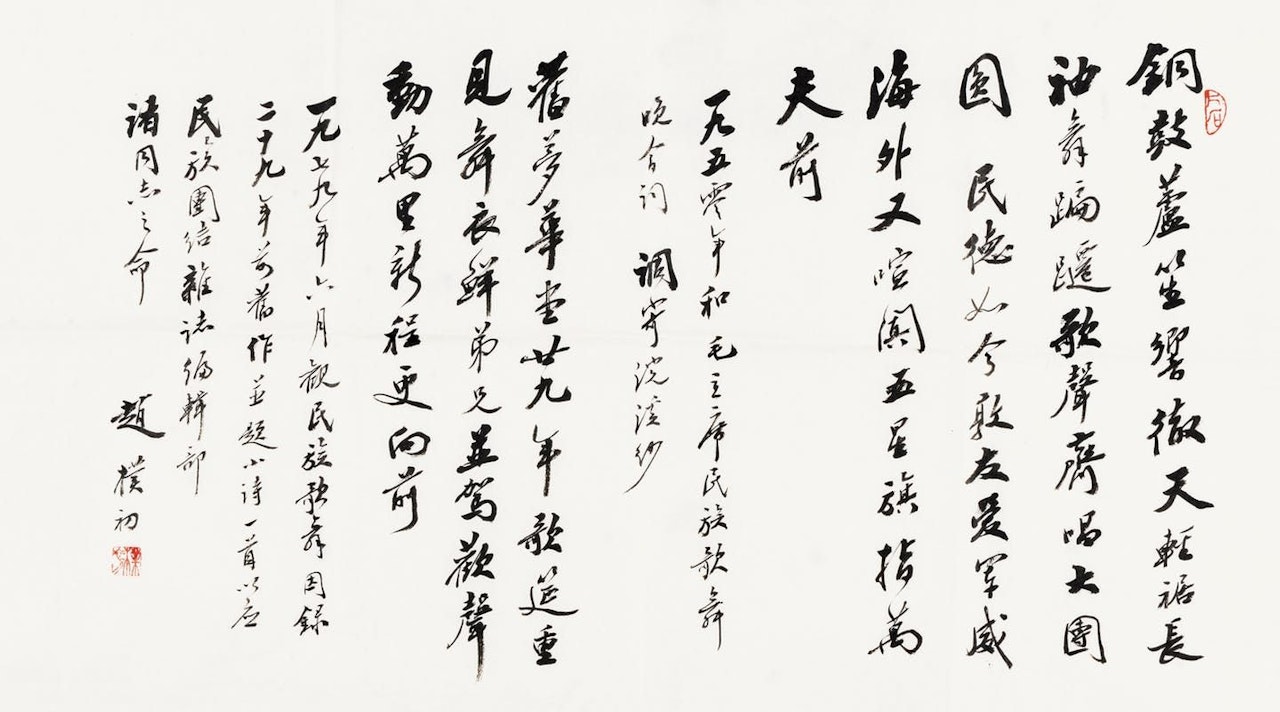 銅鼓蘆笙響徹天輕裾長
袖舞蹁躚歌聲齊唱大團
圓 民德如今敦友愛軍威
海外又喧闐五星旗指萬
夫前
一九五零年和毛主席民族歌舞
晚會詞 調寄浣溪紗
舊夢華堂廿九年歌筵重
見舞衣鮮弟兄並駕歡聲
動萬里新程更向前
一九七九年六月觀民族歌舞因錄
二十九年前舊作並題小詩一首以應
民族團結雜誌編輯部
諸同志之命
趙樸初